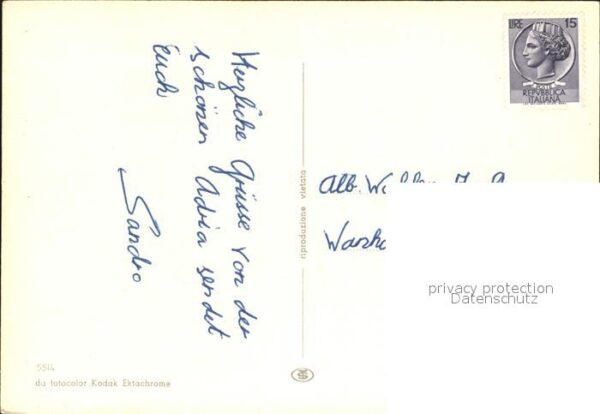 LIRE 15
POSTE
REPVBBLICA
ITALIANA
Herzliche Grüsse von der
schönen Adria sendet
Euch
Sandro
riproduzione vietata
Alb.
privacy protection
Datenschutz
5514
da fotocolor Kodak Ektachrome